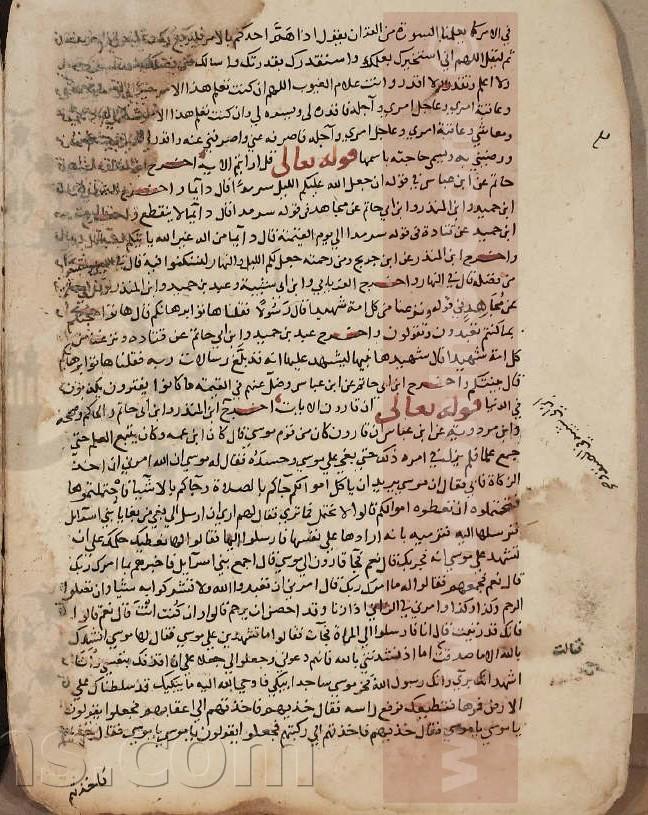 في الامر كما يعلمنا السورة من القران يقول اذا هم احدكم بالامر فليركع ركعتين
ثم ليقل اللهم اني استخيرك بعلمك واستقدرك بقدرتك واسالك
ولا اعلم وتقدر ولا اقدر وانت علام الغيوب اللهم ان كنت تعلم هذا الامر
وعاقبة امري وعاجل امري واجله فاقدره لي ويسره لي وان كنت تعلم هذا الامر
ومعاشي وعاقبة امري وعاجل امري واجله فاصرفه عني واصرفني عنه واقدر
ورضيني به ويسمي حاجته باسمها قوله تعالى قل ارايتم الاية اخرج
حاتم عن ابن عباس في قوله ان جعل الله عليكم الليل سرمدا قال دايما واخرج
ابن حميد وابن المنذر وابن ابي حاتم عن مجاهد في قوله سرمدا قال دايما لا ينقطع
ابن حميد عن قتادة في قوله سرمدا الى يوم القيمة قال دايما من اله غير الله ياتيكم
واخرج ابن المنذر عن ابن جريج ومن رحمته جعل لكم الليل والنهار لتسكنوا فيه قال في
من فضله قال في النهار واخرج الفريابي وابن ابي شيبة وعبد بن حميد وابن المنذر
عن مجاهد في قوله ونزعنا من كل امة شهيدا قال رسولا فقلنا هاتوا برهانكم قال هاتوا
بما كنتم تعبدون وتقولون واخرج عبد بن حميد وابن ابي حاتم عن قتادة ونزعنا من
كل امة شهيدا قال شهيدها نبيها ليشهد عليها انه قد بلغ رسالات ربه فقلنا هاتوا برهانكم
قال بينتكم واخرج ابن ابي حاتم عن ابن عباس وضل عنهم في القيمة ما كانوا يفترون يكذبون
في الدنيا قوله تعالى ان قارون الايات اخرج ابن المنذر وابن ابي حاتم والحاكم وصححه
وابن مردويه عن ابن عباس ان قارون كان من قوم موسى قال كان ابن عمه وكان يتبع العلم حتى
جمع علما فلم يزل في امره ذلك حتى بغى على موسى وحسده فقال له موسى ان الله امرني ان اخذ
الزكاة فابى فقال ان موسى يريد ان ياكل اموالكم جاكم بالصلاة وجاكم باشيا فاحتملتموها
فتحتملوه ان تعطوه اموالكم قالوا لا نحتمل فما ترى فقال لهم ارى ان ارسل الى بغي من بغايا بني اسرايل
فنرسلها اليه فترميه بانه ارادها على نفسها فارسلوا اليها فقالوا لها نعطيك حكمك على ان
تشهدي على موسى انه فجر بك قال نعم فجا قارون الى موسى قال اجمع بني اسرايل فاخبرهم بما امرك ربك
قال نعم فجمعهم فقالوا له ما امرك ربك قال امرني ان تعبدوا الله ولا تشركوا به شيا وان تصلوا
الرحم وكذا وكذا وامرني في الزاني اذا زنا وقد احصن ان يرجم قالوا وان كنت انت قال نعم قالوا
فانك قد زنيت قال انا فارسلوا الى المراة فجات فقالوا ما تشهدين على موسى فقال لها موسى انشدك
بالله الا ما صدقت قالت اما اذ نشدتني بالله فانهم دعوني وجعلوا لي جعلا على ان اقذفك بنفسي وانا
اشهد انك بري وانك رسول الله فخر موسى ساجدا يبكي فاوحى الله اليه ما يبكيك قد سلطناك على
الارض فمرها فتطيعك فرفع راسه فقال خذيهم فاخذتهم الى اعقابهم فجعلوا يقولون
يا موسى يا موسى فقال خذيهم فاخذتهم الى ركبهم فجعلوا يقولون يا موسى يا موسى فقال خذيهم
فاخذتهم
قالت